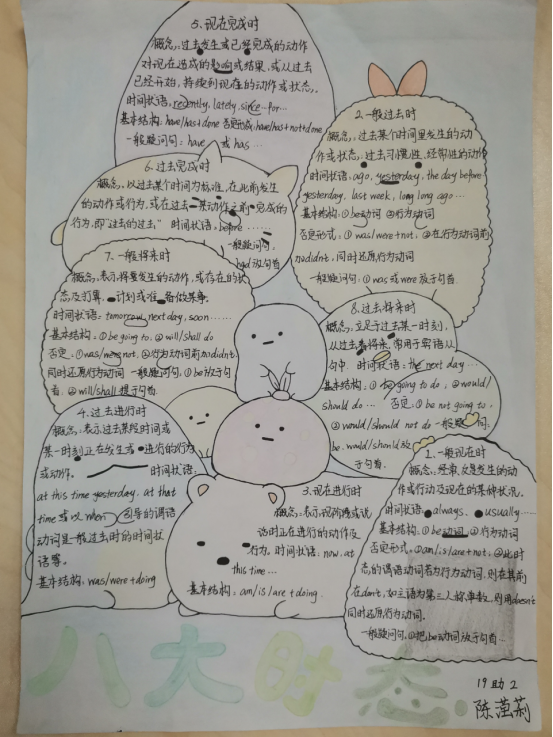 5、现在完成时
概念:过去发生或已经完成的动作
对现在造成的影响或结果,或从过去
已经开始,持续到现在的动作或状态。
时间状语,recently, lately, since…for…
基本结构:have/has+done 否定形式:have/has+not+done
一般疑问句:have 或 has…
2、一般过去时
概念:过去某个时间里发生的动
作或状态,过去习惯性、经常性的动作
时间状语:ago, yesterday, the day before
yesterday, last week, long long ago…
基本结构:①be动词 ②行为动词
否定形式:①was/were+not, ②在行为动词前
加didn't,同时还原行为动词
一般疑问句:①was或were放于句首
6、过去完成时
概念:以过去某个时间为标准,在此前发生
的动作或行为,或在过去某动作之前完成的
行为,即"过去的过去" 时间状语,before…
一般疑问句:
had放句首
7、一般将来时
概念:表示将要发生的动作,或存在的状
态及打算、计划或准备做某事。
时间状语:tomorrow, next day, soon……
基本结构:①be going to, ②will/shall do
否定:①was/were not, ②行为动词前加didn't
同时还原行为动词 一般疑问句,①be放于句
首,②will/shall提于句首
8、过去将来时
概念:立足于过去某一时刻,
从过去看将来,常用于宾语从
句中. 时间状语:the next day…
基本结构:①be going to do, ②would/
should do… 否定:①be not going to,
②would/should not do 一般疑问句:
be, would/should放
于句首.
4、过去进行时
概念:表示过去某段时间或
某一时刻正在发生或进行的行为
或动作。 时间状语:
at this time yesterday, at that
time或以when引导的谓语
动词是一般过去时的时间状
语等。
基本结构:was/were+doing
3、现在进行时
概念:表示现阶段或说
话时正在进行的动作及
行为,时间状语:now, at
this time…
基本结构:am/is/are+doing
1、一般现在时
概念:经常、反复发生的动
作或行为及现在的某种状况。
时间状语:always, usually……
基本结构:①be动词 ②行为动词
否定形式,①am/is/are+not, ②此时
态的谓语动词若为行为动词,则在其前
加don't,如主语为第三人称单数,则用doesn't
同时还原行为动词。
一般疑问句,①把be动词放于句首…
八大时态
19助2
陈滢莉